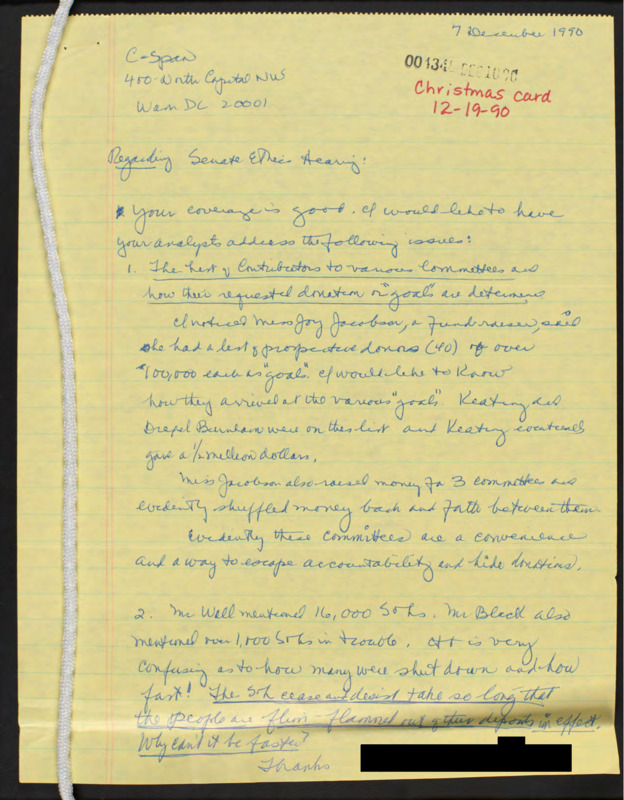 7 December 1990
C-Span
400 North Capital NW
Wash DC 20001
001341 DEC 10 90
Christmas card
12-19-90
Regarding Senate Ethics Hearing:
Your coverage is good. I would like to have
your analysts address the following issues:
1. The list of Contributors to various Committees and
how their requested donation or "goals" are determine
I noticed Miss Joy Jacobson, a Fund raiser, said
she had a list of prospective donors (40) of over
$100,000 each as "goals". I would like to know
how they arrived at the various "goals". Keating and
Drexel Burnham were on this list and Keating eventually
gave a 1/2 million dollars.
Miss Jacobson also raised money for 3 committees and
evidently shuffled money back and forth between them.
Evidently these committees are a convenience
and a way to escape accountability and hide donations.
2. Mr Wall mentioned 16,000 S&Ls. Mr Black also
mentioned over 1,000 S&Ls in trouble. It is very
confusing as to how many were shut down and how
fast! The S&L cease and desist take so long that
the people are flim-flammed out of their deposits in effect.
Why can't it be faster?
Thanks